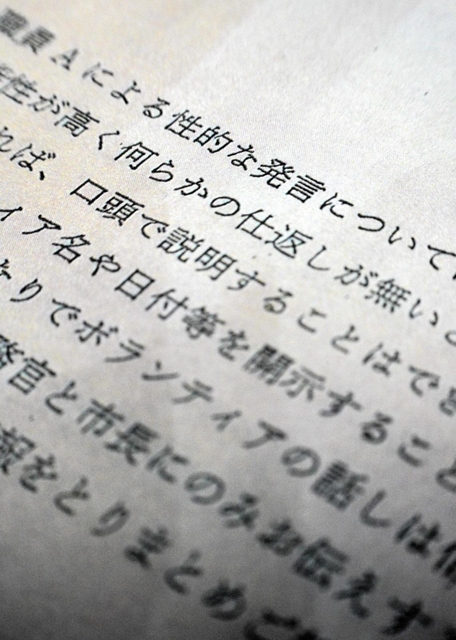 職員Aによる性的な発言について
性が高く何らかの仕返しが無いと
れば、口頭で説明することはでき
ィア名や日付等を開示すること
りでボランティアの話しは
務官と市長にのみお伝えす
報をとりまとめご